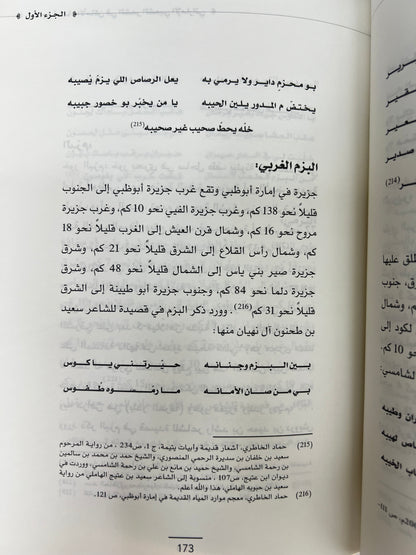 الجزء الأول
بو محزم داير ولا يرمي به
يعل الرصاص اللي يزم يْصيبه
بختض م المدور يلين الحيبه
يا من يخبّر بو خصور جبيبه
خلّه يحطّ صحيب غير صحيبه(215)
البزم الغربي:
جزيرة في إمارة أبوظبي وتقع غرب جزيرة أبوظبي إلى الجنوب
قليلاً نحو 138 كم، وغرب جزيرة الفيي نحو 10 كم، وغرب جزيرة
مروح نحو 16 كم، وشمال قرن العيش إلى الغرب قليلاً نحو 18
كم، وشمال رأس القلاع إلى الشرق قليلاً نحو 21 كم، وشرق
جزيرة صير بني ياس إلى الشمال قليلاً نحو 48 كم، وشرق
جزيرة دلما نحو 84 كم، وجنوب جزيرة أبو طبينة إلى الشرق
قليلاً نحو 31 كم(216). وورد ذكر البزم في قصيدة للشاعر سعيد بن
بن طحنون آل نهيان منها:
بين البزم وجنانه
حيّرتني يا كوس
بي من صان الأمانة
ما رموه طفوس
(215) حماد الخاطري، أشعار قديمة وأبيات يتيمة، ج 1، ص234. من رواية المرحوم
سعيد بن خلفان بن سديرة الرحمي المنصوري، والشيخ حمد بن محمد بن سالمين
بن رحمة الشامسي، والشيخ حميد بن مانع بن علي بن رحمة الشامسي، ووردت في
ديوان ابن عتيج، ص107، منسوبة إلى الشاعر سعيد بن عتيج الهاملي من رواية
سعيد بن حبوبه الهاملي، وهذا والله أعلم.
(216) حماد الخاطري، معجم موارد المياه القديمة في إمارة أبوظبي، ص 121.
173